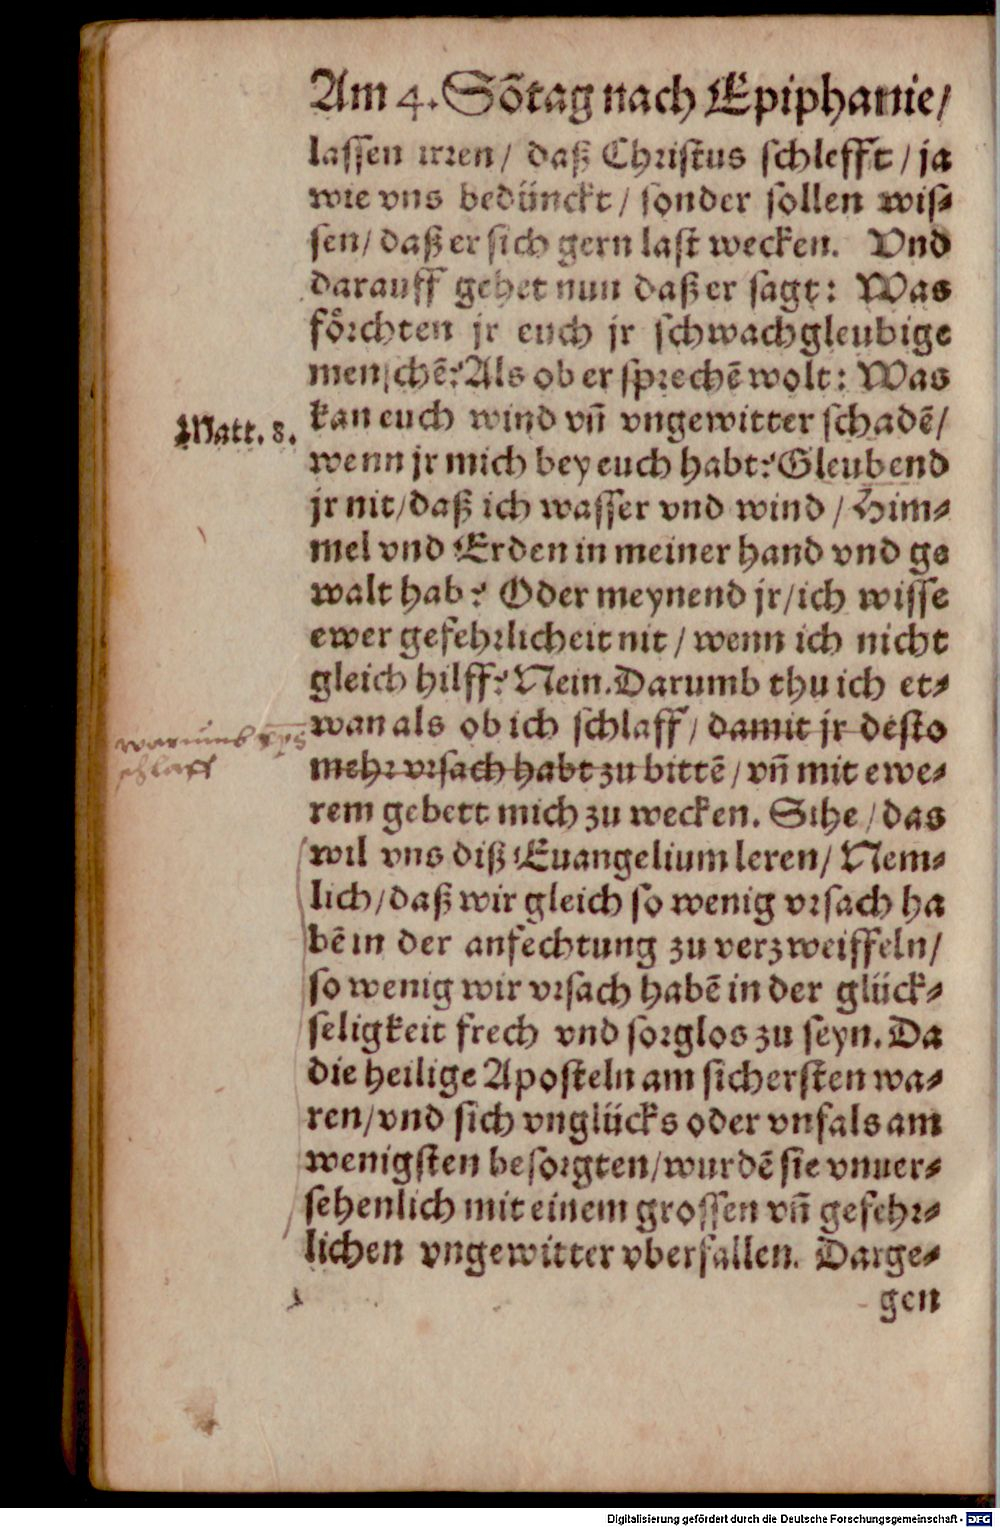 Am 4. Sõtag nach Epiphanie/
lassen irren/ daß Christus schlefft/ ja
wie vns bedünckt/ sonder sollen wis-
sen/ daß er sich gern last wecken. Vnd
darauff gehet nun daß er sagt: Was
förchten jr euch jr schwachgleubige
menschẽ? Als ob er sprechẽ wolt: Was
kan euch wind vñ vngewitter schadẽ/
Matt. 8.
wenn jr mich bey euch habt? Gleubend
jr nit/ daß ich wasser vnd wind/ Him-
mel vnd Erden in meiner hand vnd ge
walt hab? Oder meynend jr/ ich wisse
ewer gefehrlicheit nit/ wenn ich nicht
gleich hilff? Nein. Darumb thu ich et-
wan als ob ich schlaff/ damit jr desto
warumb xp̄s
schlaff
mehr vrsach habt zu bittẽ/ vñ mit ewe-
rem gebett mich zu wecken. Sihe/ das
wil vns diß Euangelium leren/ Nem-
lich/ daß wir gleich so wenig vrsach ha
bẽ in der anfechtung zu verzweiffeln/
so wenig wir vrsach habẽ in der glück-
seligkeit frech vnd sorglos zu seyn. Da
die heilige Aposteln am sichersten wa-
ren/ vnd sich vnglücks oder vnfals am
wenigsten besorgten/ wurdẽ sie vnuer-
sehenlich mit einem grossen vñ gefehr-
lichen vngewitter vberfallen. Darge-
gen
Digitalisierung gefördert durch die Deutsche Forschungsgemeinschaft - DFG